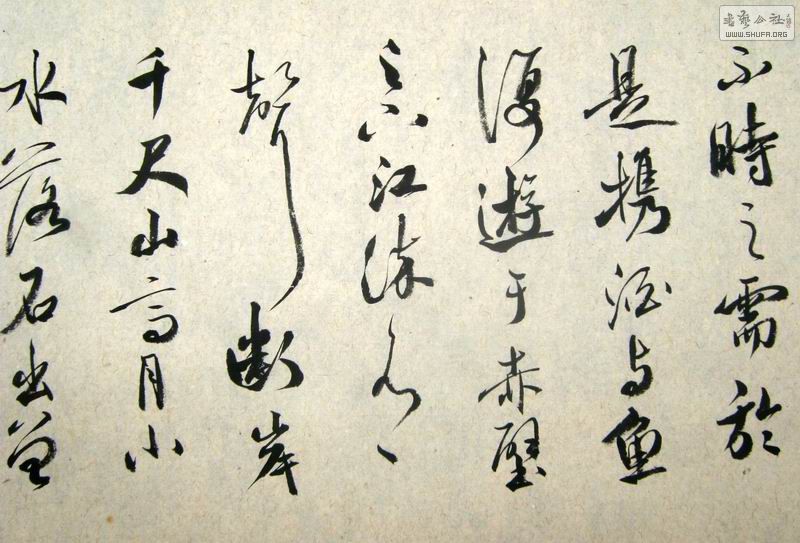 不時之需於
是攜酒与魚
復遊于赤壁
之下江流有
聲断岸
千尺山高月小
水落石出曾
書藝公社
WWW.SHUFA.ORG